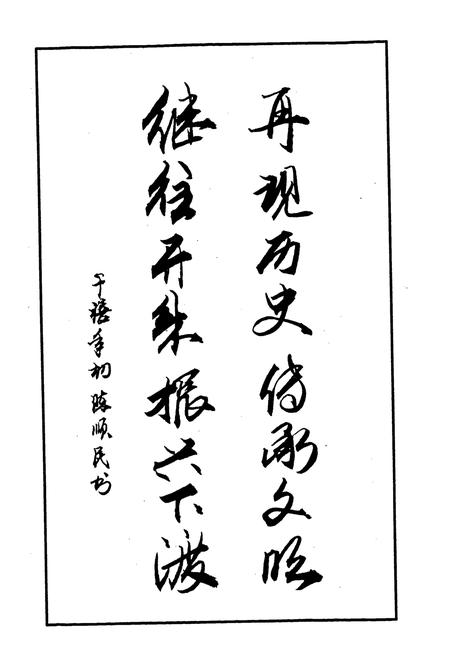 再现历史传承文明
继往开来振兴下渡
千禧年初陈顺民书